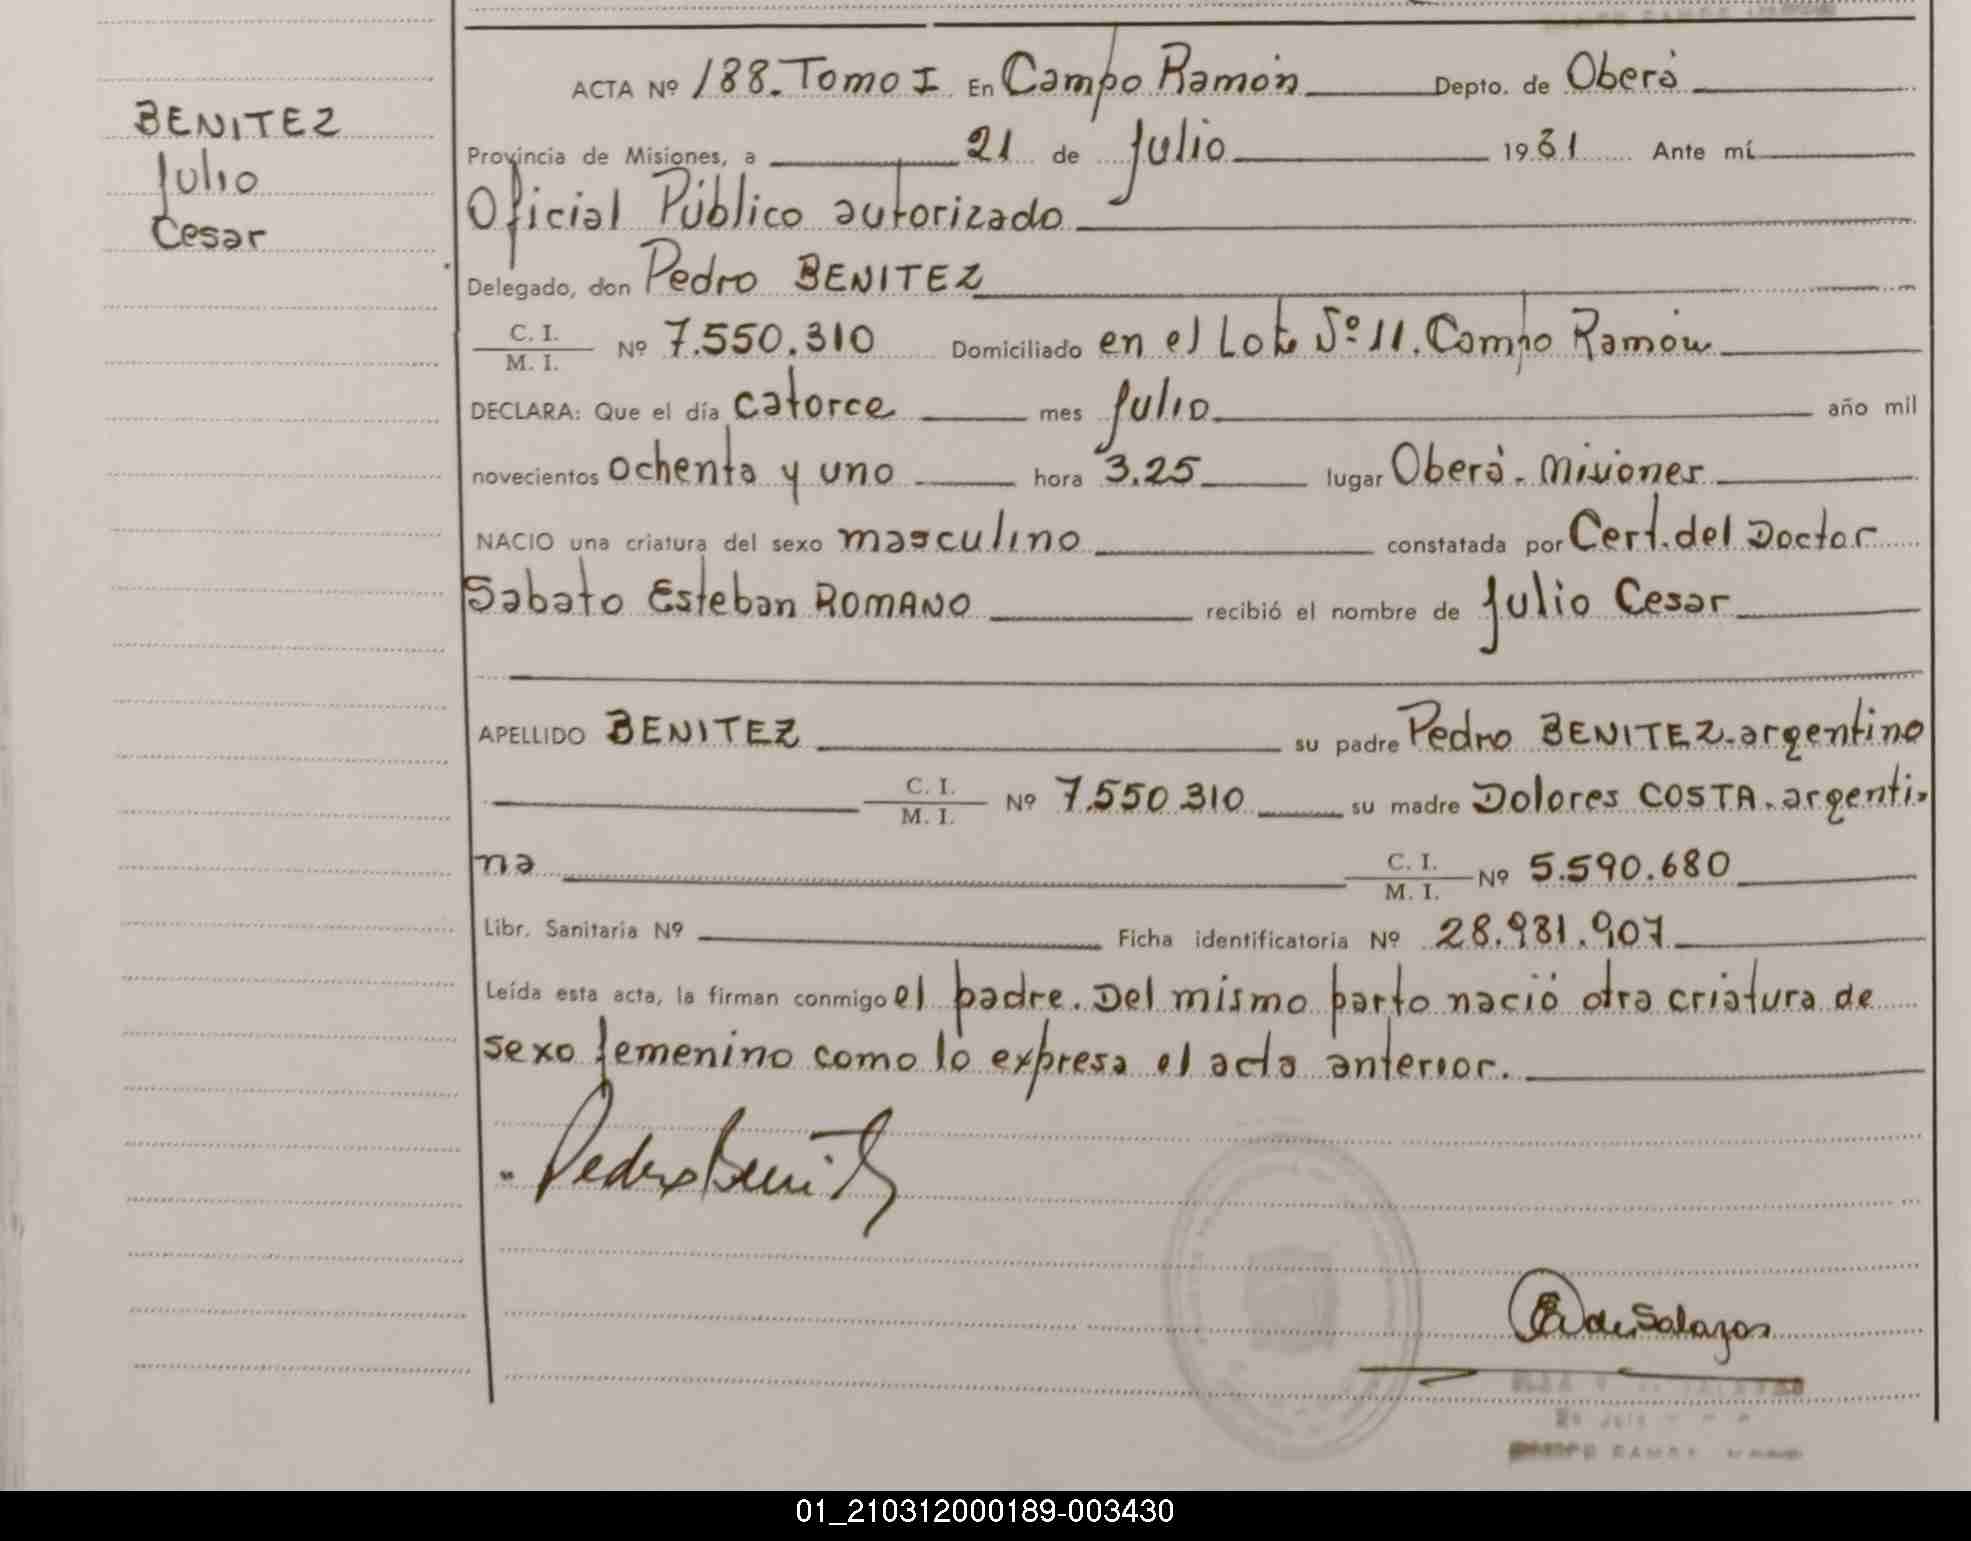 BENITEZ
Julio
Cesar
ACTA Nº 188. Tomo I En Campo Ramón Depto. de Oberá
Provincia de Misiones, a 21 de Julio 1981 Ante mí
Oficial Público autorizado
Delegado, don Pedro BENITEZ
C. I.
M. I. Nº 7.550.310 Domiciliado en el Lote Nº 11. Campo Ramón
DECLARA: Que el día catorce mes Julio año mil
novecientos ochenta y uno hora 3.25 lugar Oberá. Misiones
NACIO una criatura del sexo masculino constatada por Cert. del Doctor
Sabato Esteban ROMANO recibió el nombre de Julio Cesar
APELLIDO BENITEZ su padre Pedro BENITEZ. argentino
C. I.
M. I. Nº 7.550.310 su madre Dolores COSTA. argenti-
na C. I.
M. I. Nº 5.590.680
Libr. Sanitaria Nº Ficha identificatoria Nº 28.981.907
Leída esta acta, la firman conmigo el padre. Del mismo parto nació otra criatura de
sexo femenino como lo expresa el acta anterior.
Pedro Benitez
de Salazar
01_210312000189-003430